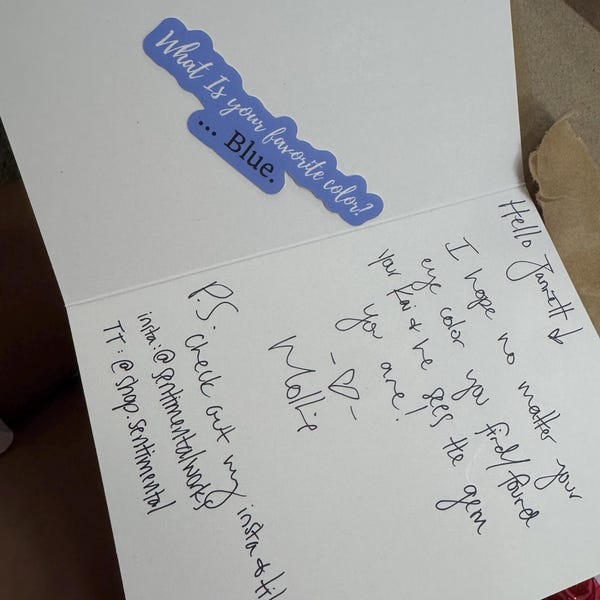 What Is your favorite color?
... Blue.
Hello
I hope no matter your
eye color you find/found
your Kai & he sees the gem
you are!
-♡-
Mollie
P.S. check out my insta &
insta: @sentimentalworks
TT: @shop.sentimental